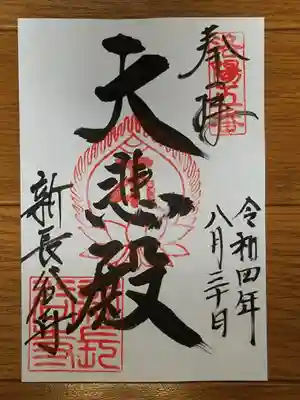 奉拝
令和四年
八月三十日
大悲殿
新長谷寺